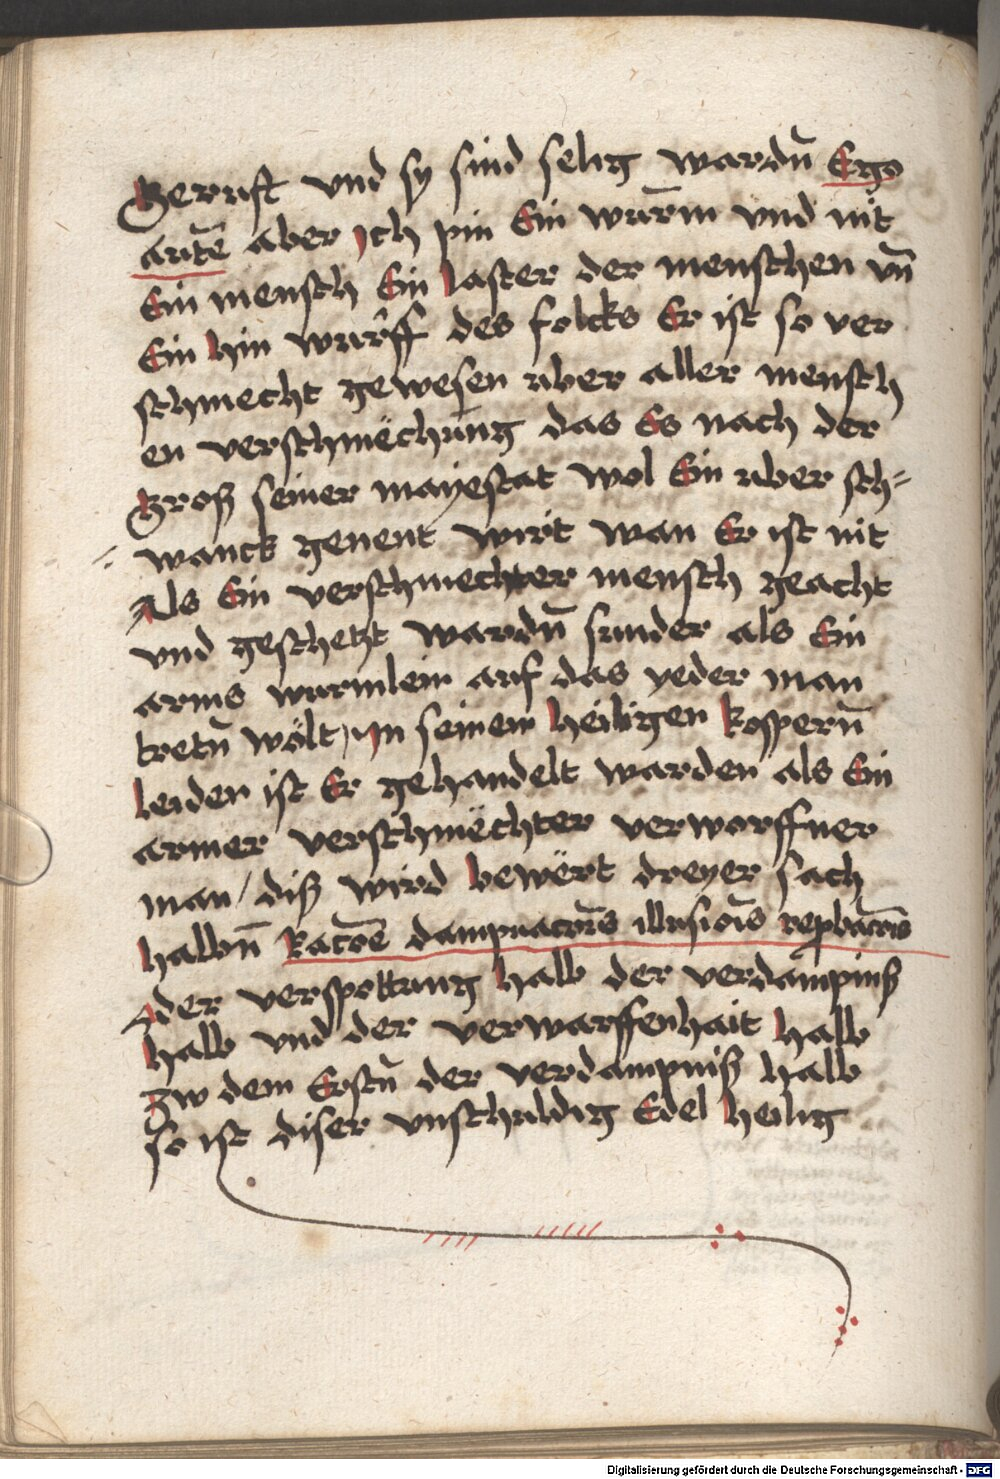 Gerufft vnd sy sind selig wardn̄ Ergo
autē aber jch pin Ein wūrm vnd nit
Ein mensch Ein laster der menschen vn̄
Ein hin wūrff des folcks Er ist so ver
schmecht gewesen vber aller mensch
en verschmëchūng das Es nach der
Groß seiner mayestat wol Ein vber sch=
wanck genent wirt wan Er ist nit
Als Ein verschmechter mensch geacht
vnd geschetzt wardn̄ sunder als Ein
arms wurmlein auf das yeder man
tretn̄ wölt / Jn seinem heiligen kospern̄
leiden ist Er gehandelt warden als Ein
armer verschmëchter verworffner
man / diß wird bewërt dreyer sach
halbn̄ Racōe dampnacōis illusiōis repbacōis
der verspottung halb der verdampniß
halb vnd der verwarffenhait halb
Zw dem Erstn̄ der verdampniß halb
so ist diser vnschuldig Edel heilig
Digitalisierung gefördert durch die Deutsche Forschungsgemeinschaft - DFG